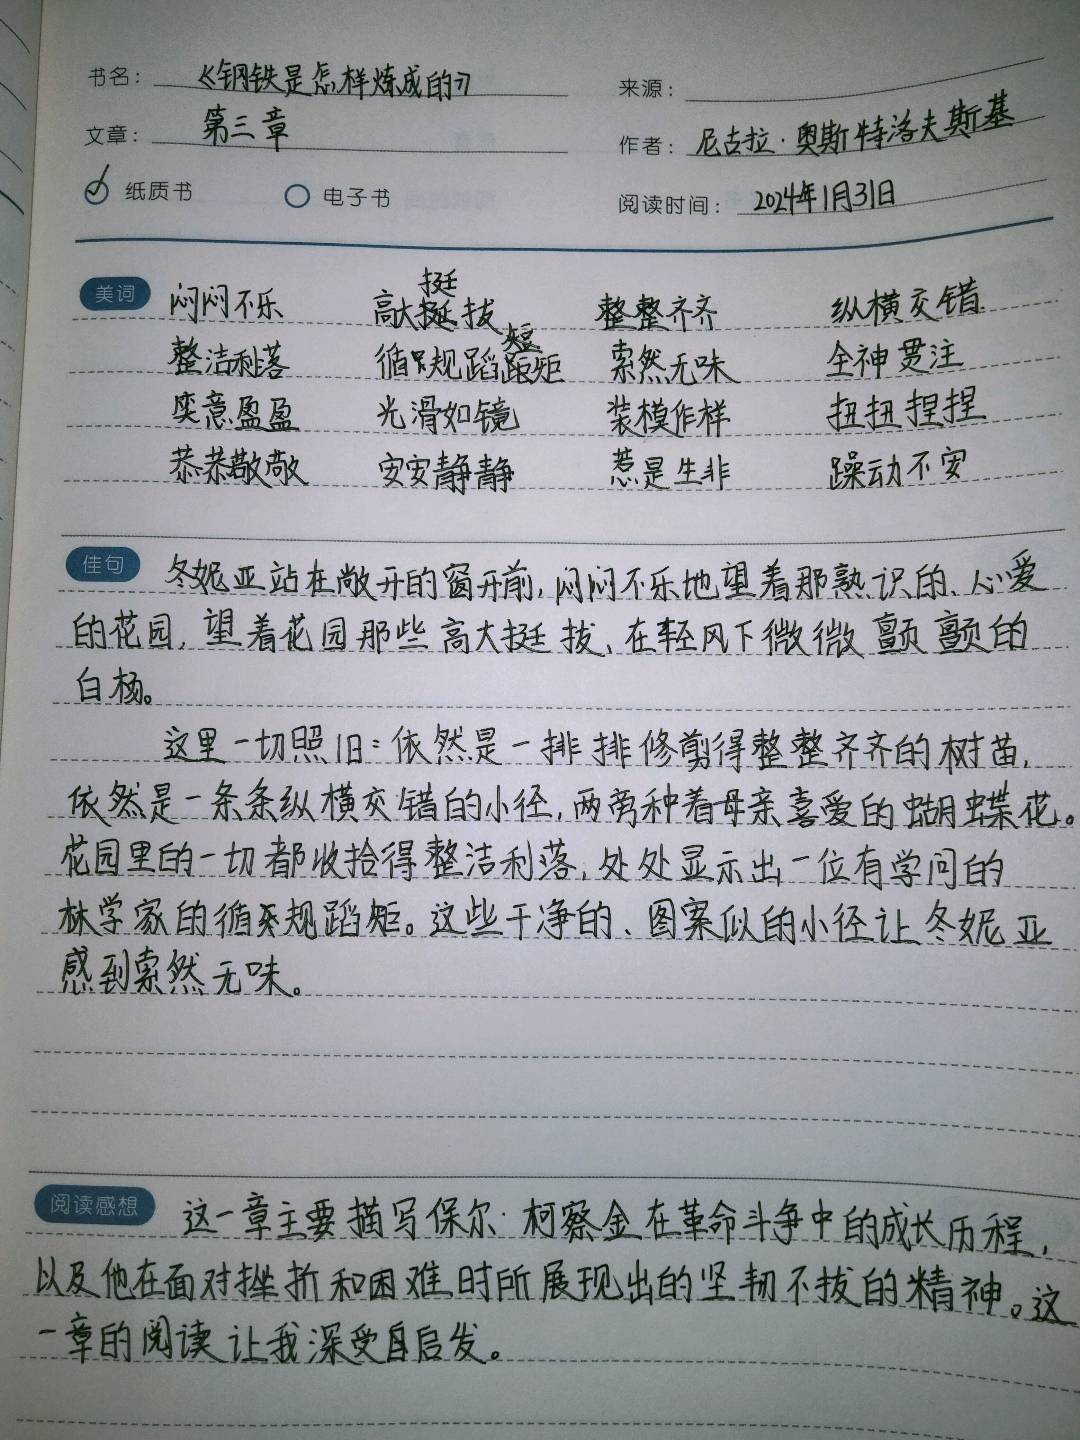 书名： 《钢铁是怎样炼成的》 来源：
文章： 第三章 作者： 尼古拉·奥斯特洛夫斯基
纸质书 电子书 阅读时间： 2024年1月31日
美词 闷闷不乐 高大挺拔 整整齐齐 纵横交错
整洁利落 循规蹈矩 索然无味 全神贯注
笑意盈盈 光滑如镜 装模作样 扭扭捏捏
恭恭敬敬 安安静静 惹是生非 躁动不安
佳句 冬妮亚站在敞开的窗开前，闷闷不乐地望着那熟识的、心爱
的花园，望着花园那些高大挺拔、在轻风下微微颤颤的
白杨。
这里一切照旧：依然是一排排修剪得整整齐齐的树苗，
依然是一条条纵横交错的小径，两旁种着母亲喜爱的蝴蝶花。
花园里的一切都收拾得整洁利落，处处显示出一位有学问的
林学家的循规蹈矩。这些干净的、图案似的小径让冬妮亚
感到索然无味。
阅读感想 这一章主要描写保尔·柯察金在革命斗争中的成长历程，
以及他在面对挫折和困难时所展现出的坚韧不拔的精神。这
一章的阅读让我深受启发。